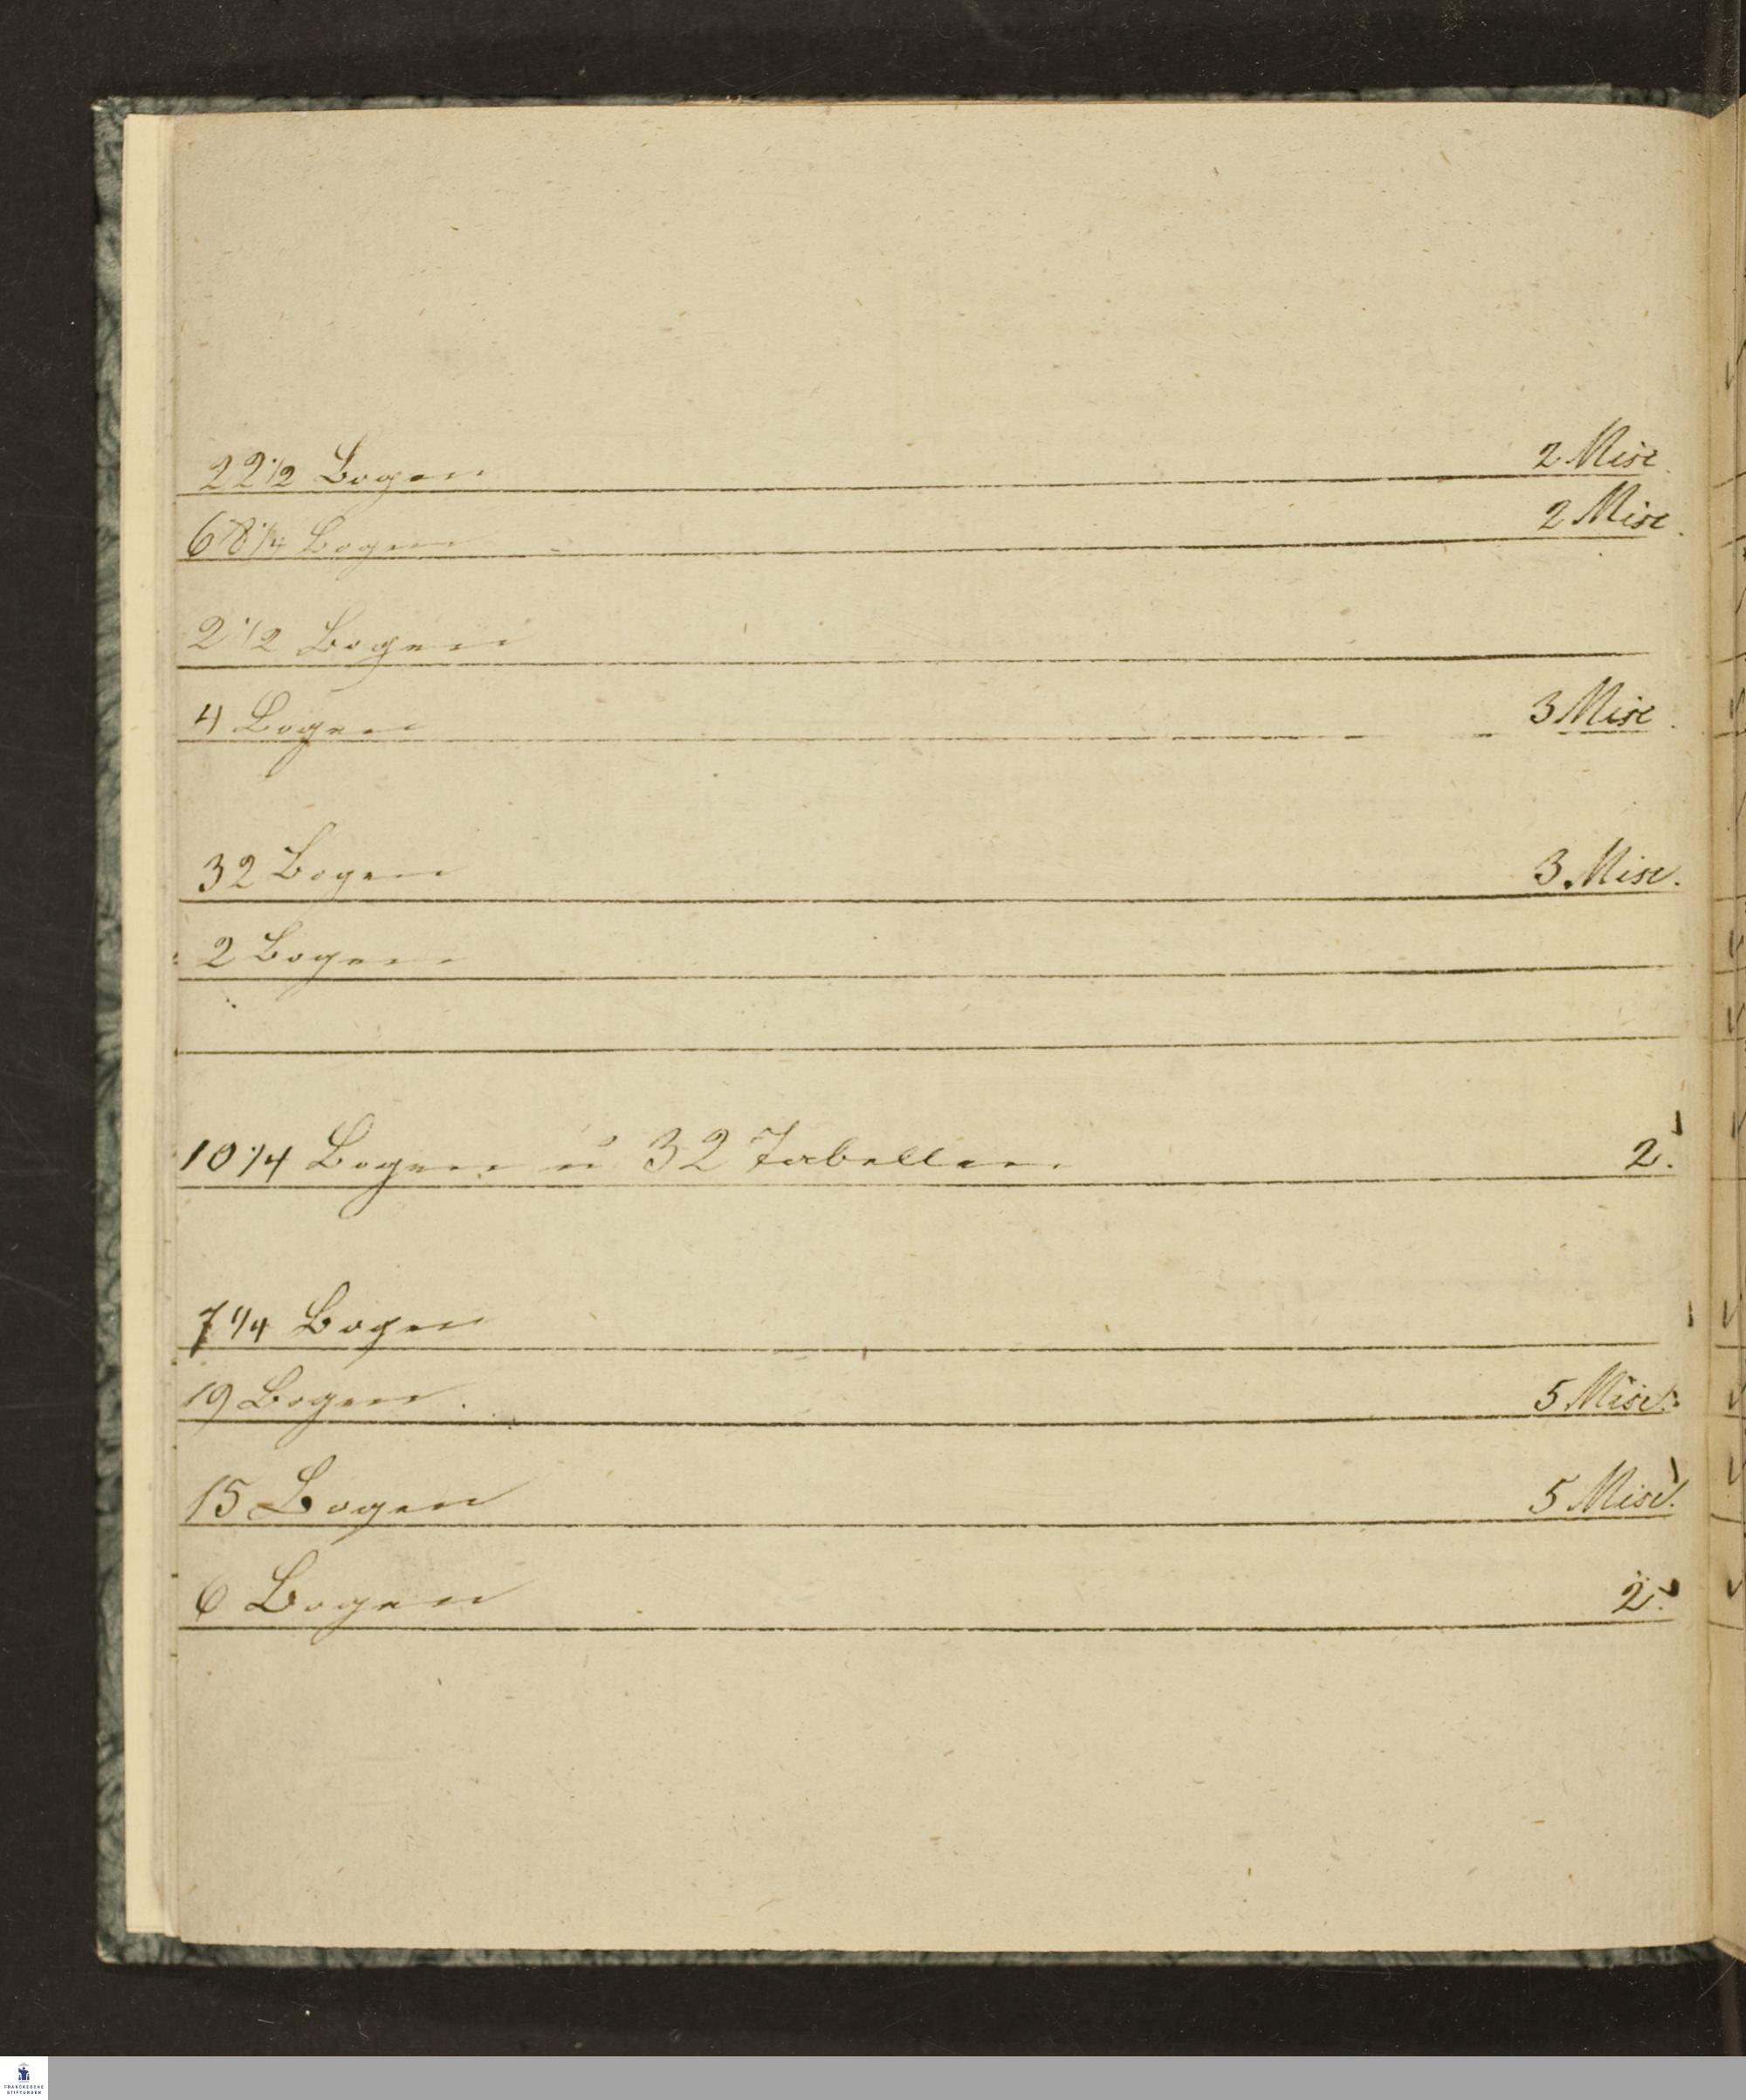 22 1/2 Bogen 2 Misc.
68 1/4 Bogen 2 Misc.
2 1/2 Bogen
4 Bogen 3 Misc.
32 Bogen 3 Misc.
2 Bogen
10 1/4 Bogen u 32 Tabellen. 2.
7 1/4 Bogen
19 Bogen. 5 Misc.
15 Bogen 5 Misc.
6 Bogen 2.
FRANCKESCHE
STIFTUNGEN